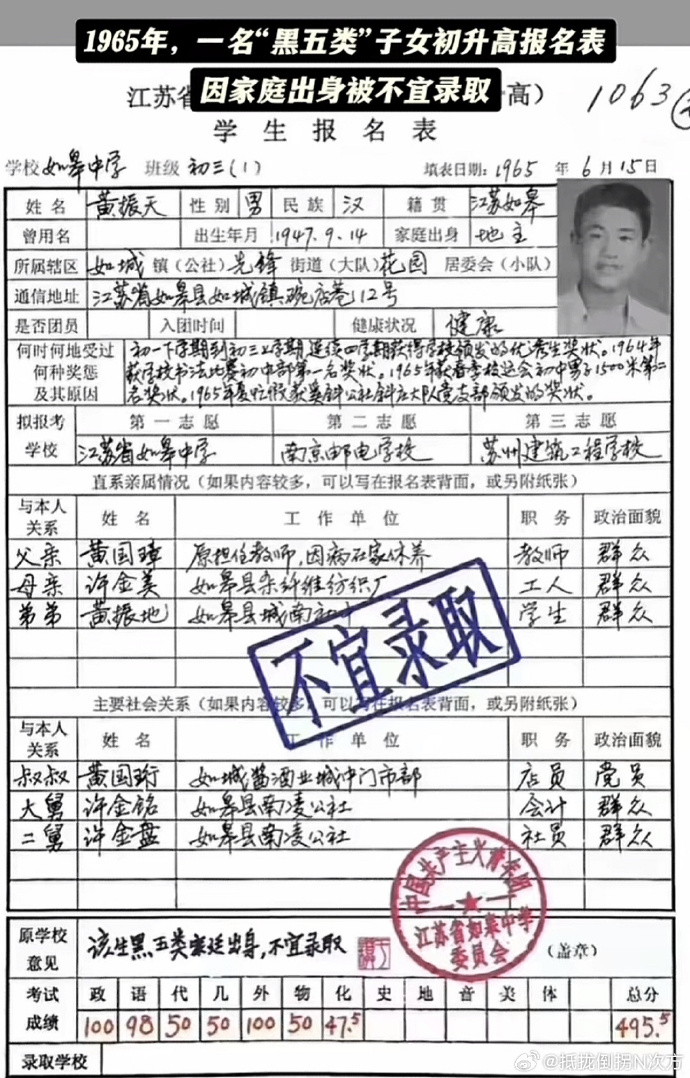 1965年，一名“黑五类”子女初升高报名表
因家庭出身被不宜录取
江苏省 高） 1063
学生报名表
学校 如皋中学 班级 初三（1） 填表日期：1965 年 6 月 15 日
姓名 黄振天 性别 男 民族 汉 籍贯 江苏如皋
曾用名 出生年月 1947.9.14 家庭出身 地主
所属辖区 如城 镇（公社） 先锋 街道（大队） 花园 居委会（小队）
通信地址 江苏省如皋县如城镇碗店巷12号
是否团员 入团时间 健康状况 健康
何时何地受过何种奖惩及其原因
初一下学期到初三上学期连续四学期获得学校颁发的优秀生奖状。1964年
获学校书法比赛初中部第一名奖状。1965年获春季校运会初中男子1500米第二
名奖状。1965年夏忙假获 公社 大队党支部颁发的奖状。
拟报考学校 第一志愿 第二志愿 第三志愿
江苏省如皋中学 南京邮电学校 苏州建筑工程学校
直系亲属情况（如果内容较多，可以写在报名表背面，或另附纸张）
与本人关系 姓名 工作单位 职务 政治面貌
父亲 黄国璋 原担任教师，因病在家休养 教师 群众
母亲 许金美 如皋县杂纤维纺织厂 工人 群众
弟弟 黄振地 如皋县城南初中 学生 群众
不宜录取
主要社会关系（如果内容较多，可以写在报名表背面，或另附纸张）
与本人关系 姓名 工作单位 职务 政治面貌
叔叔 黄国珩 如城酱酒业城中门市部 店员 党员
大舅 许金铭 如皋县南凌公社 会计 群众
二舅 许金盘 如皋县南凌公社 社员 群众
中国共产主义青年团
江苏省如皋中学
委员会
原学校意见 该生黑五类家廷出身，不宜录取 （盖章）
考试成绩 政 语 代 几 外 物 化 史 地 音 美 体 总分
100 98 50 50 100 50 47.5 495.5
录取学校
@抵拢倒拐N次方